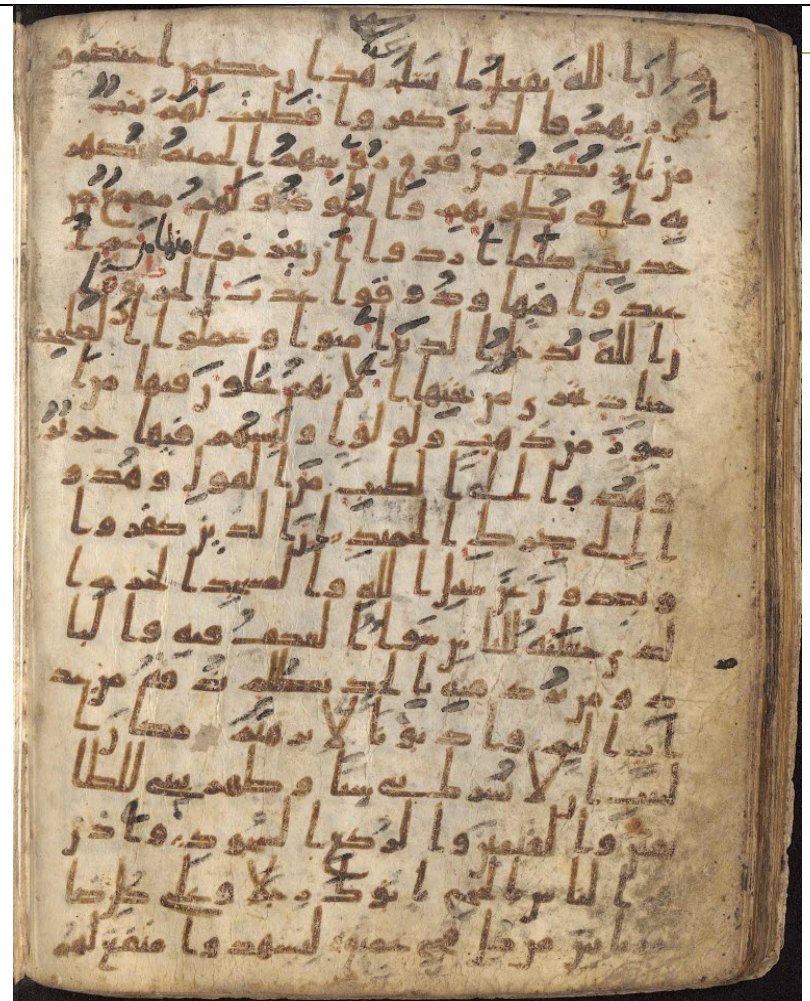 م ان الله يفعل ما يشا هذان خصمن اختصمو
ا في ربهم فالذين كفروا قطعت لهم ثيب
من نار يصب من فوق روسهم الحميم يصهر
به ما في بطونهم والجلود ولهم مقمع من
حديد كلما ارادوا ان يخرجوا منها من غم ا
عيدوا فيها وذوقوا عذاب الحريق ا
ن الله يدخل الذين امنوا وعملوا الصلحت
جنات تجري من تحتها الانهر يحلون فيها من ا
سور من ذهب ولولوا ولبسهم فيها حرير
وهدوا الى الطيب من القول وهدو
ا الى صرط الحميد ان الذين كفروا
ويصدون عن سبيل الله والمسجد الحرام ا
لذي جعلنه للناس سوا العكف فيه والبا
د ومن يرد فيه بالحد بظلم نذقه من عذ
اب اليم واذ بوانا لابرهيم مكان ا
لبيت ان لا تشرك بي شيا وطهر بيتي للطا
يفين والقيمين والركع السجود واذن
في الناس بالحج ياتوك رجلا وعلى كل ضا
مر ياتين من كل فج عميق ليشهدوا منفع لهم